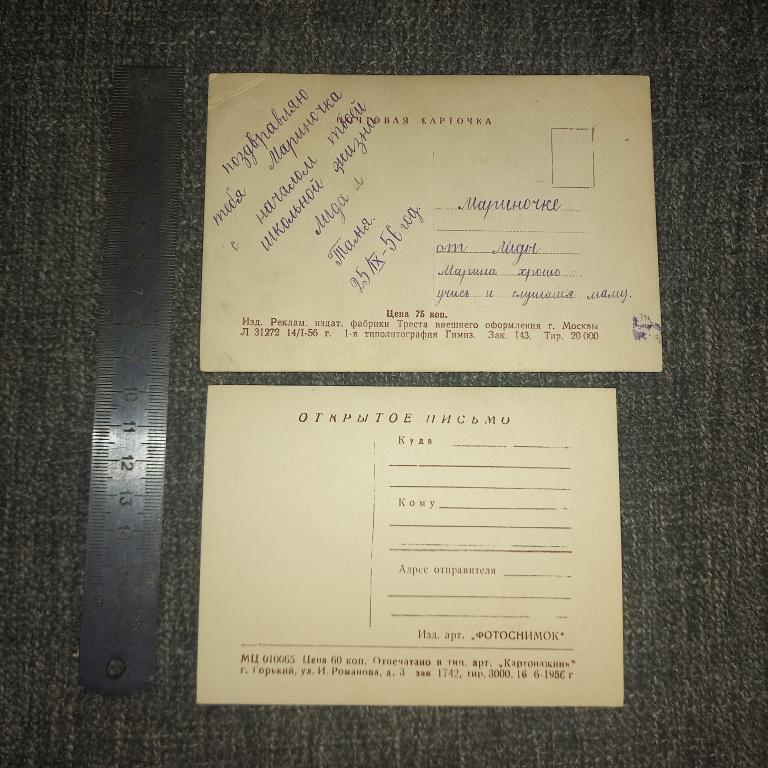 ПОЧТОВАЯ КАРТОЧКА
поздвравляю
тебя Мариночка
с началом твоей
школьной жизни
Лида и
Таня.
25 IX-56 год.
Мариночке
от Лиды
Марина хрошо
учись и слушайся маму.
Цена 75 коп.
Изд. Реклам. издат. фабрики Треста внешнего оформления г. Москвы
Л 31272 14/I-56 г. 1-я типолитография Гимиз. Зак. 143. Тир. 20 000
ОТКРЫТОЕ ПИСЬМО
Куда
Кому
Адрес отправителя
Изд. арт. „ФОТОСНИМОК"
МЦ 010065. Цена 60 коп. Отпечатано в тип. арт. „Картонажник"
г. Горький, ул. И. Романова, д. 3 зак 1742, тир. 3000. 16 6-1956 г
7
10
11
12
13
14